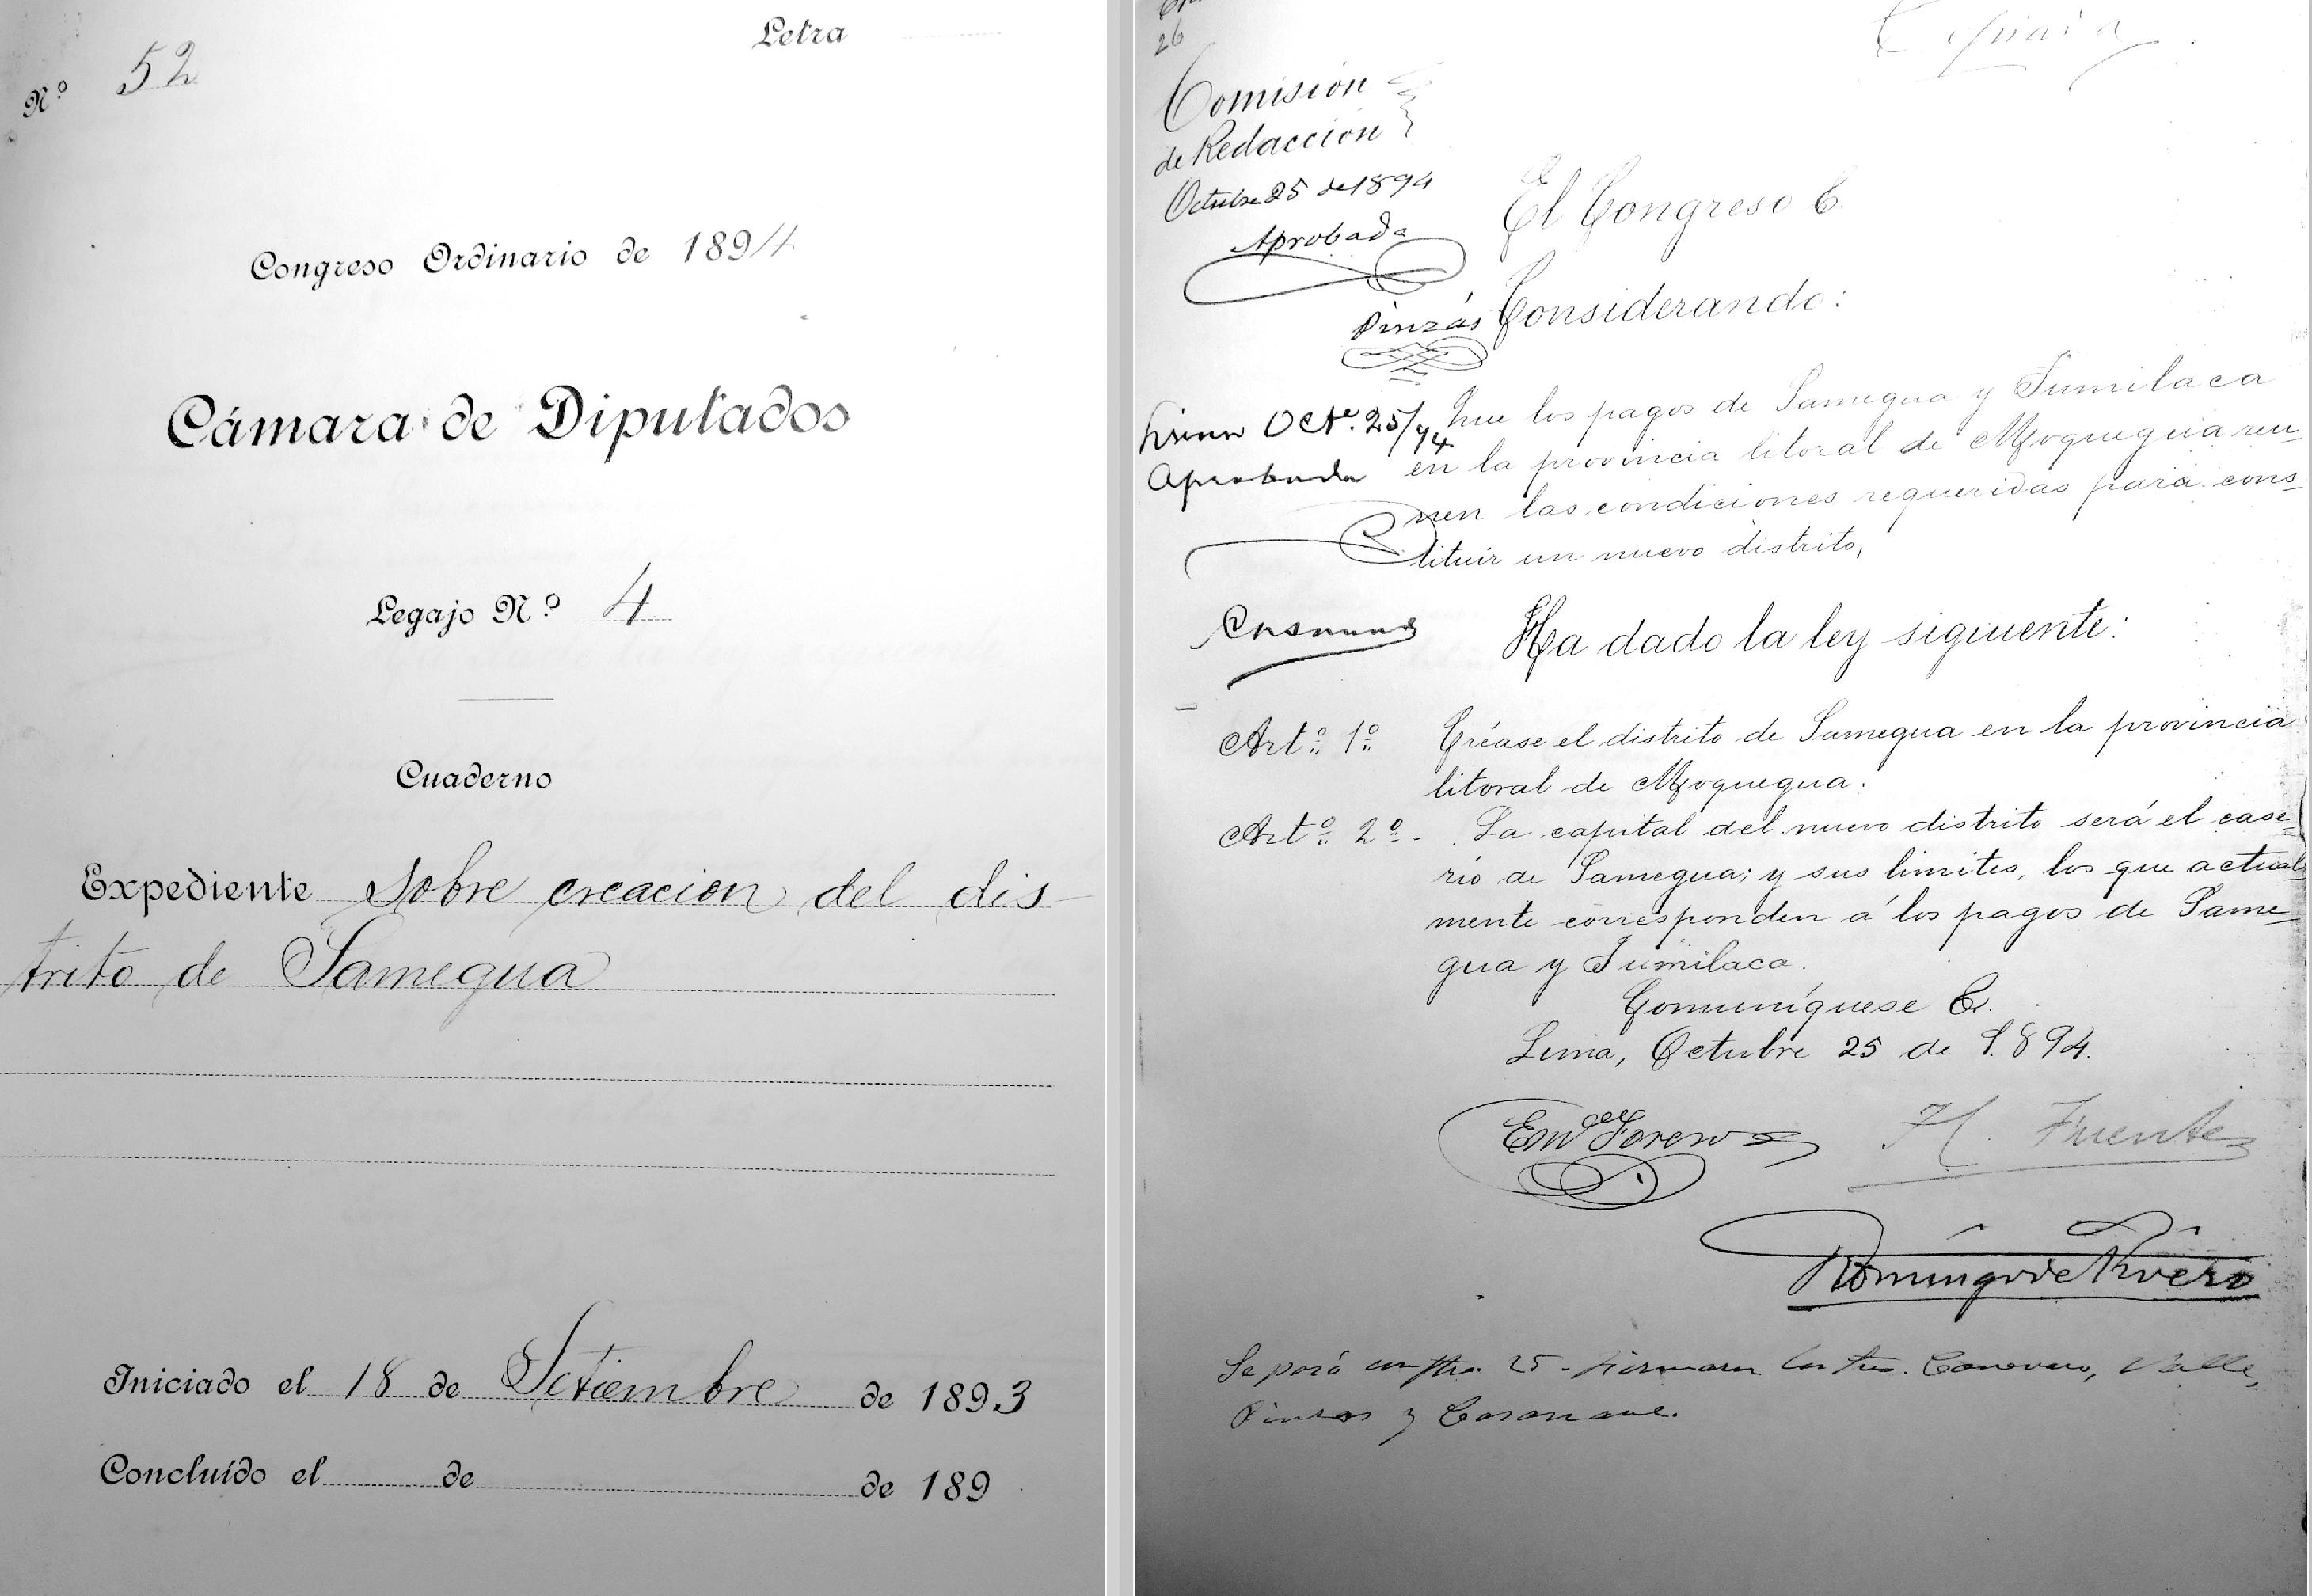 Letra
Nº 52
Congreso Ordinario de 1894
Cámara de Diputados
Legajo Nº 4
Cuaderno
Expediente sobre creacion del dis-
trito de Samegua
Iniciado el 18 de Setiembre de 1893
Concluído el de de 189
26
Comisión
de Redaccion
Octubre 25 de 1894
Aprobada
Pinzás
El Congreso &.
Considerando:
Lima Oct.e 25/94
Aprobada
Que los pagos de Samegua y Tumilaca
en la provincia litoral de Moquegua reu-
nen las condiciones requeridas para cons-
tituir un nuevo distrito,
Ha dado la ley siguiente:
Art.º 1º Créase el distrito de Samegua en la provincia
litoral de Moquegua.
Art.º 2º - La capital del nuevo distrito será el case-
río de Samegua; y sus limites, los que actual-
mente corresponden á los pagos de Same-
gua y Tumilaca.
Comuníquese &.
Lima, Octubre 25 de 1.894.
H. Fuentes
Domingo de Rivero
Se pasó 25 - Valle,
Pinzas y